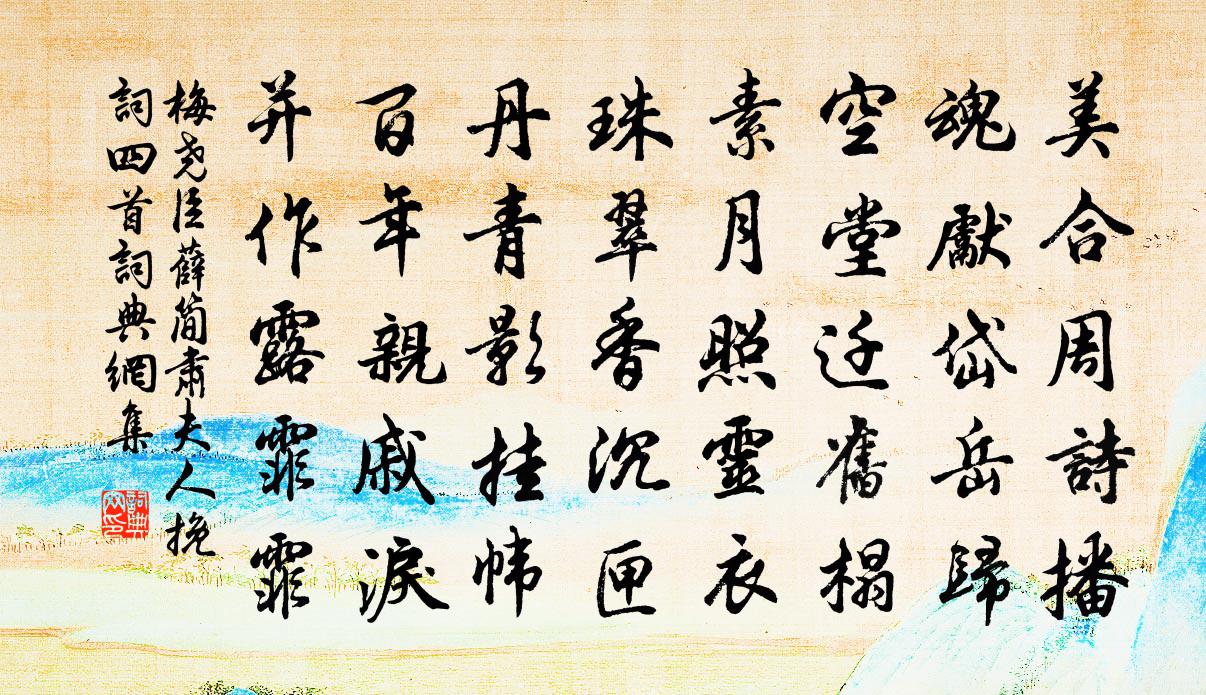 美合周詩播
魂獻岱岳歸
空堂迁舊榻
素月照靈衣
珠翠香沉匣
丹青影挂幃
百年親戚淚
并作露霏霏
梅堯臣薛簡肅夫人挽
詞四首詞典網集
詞典網印